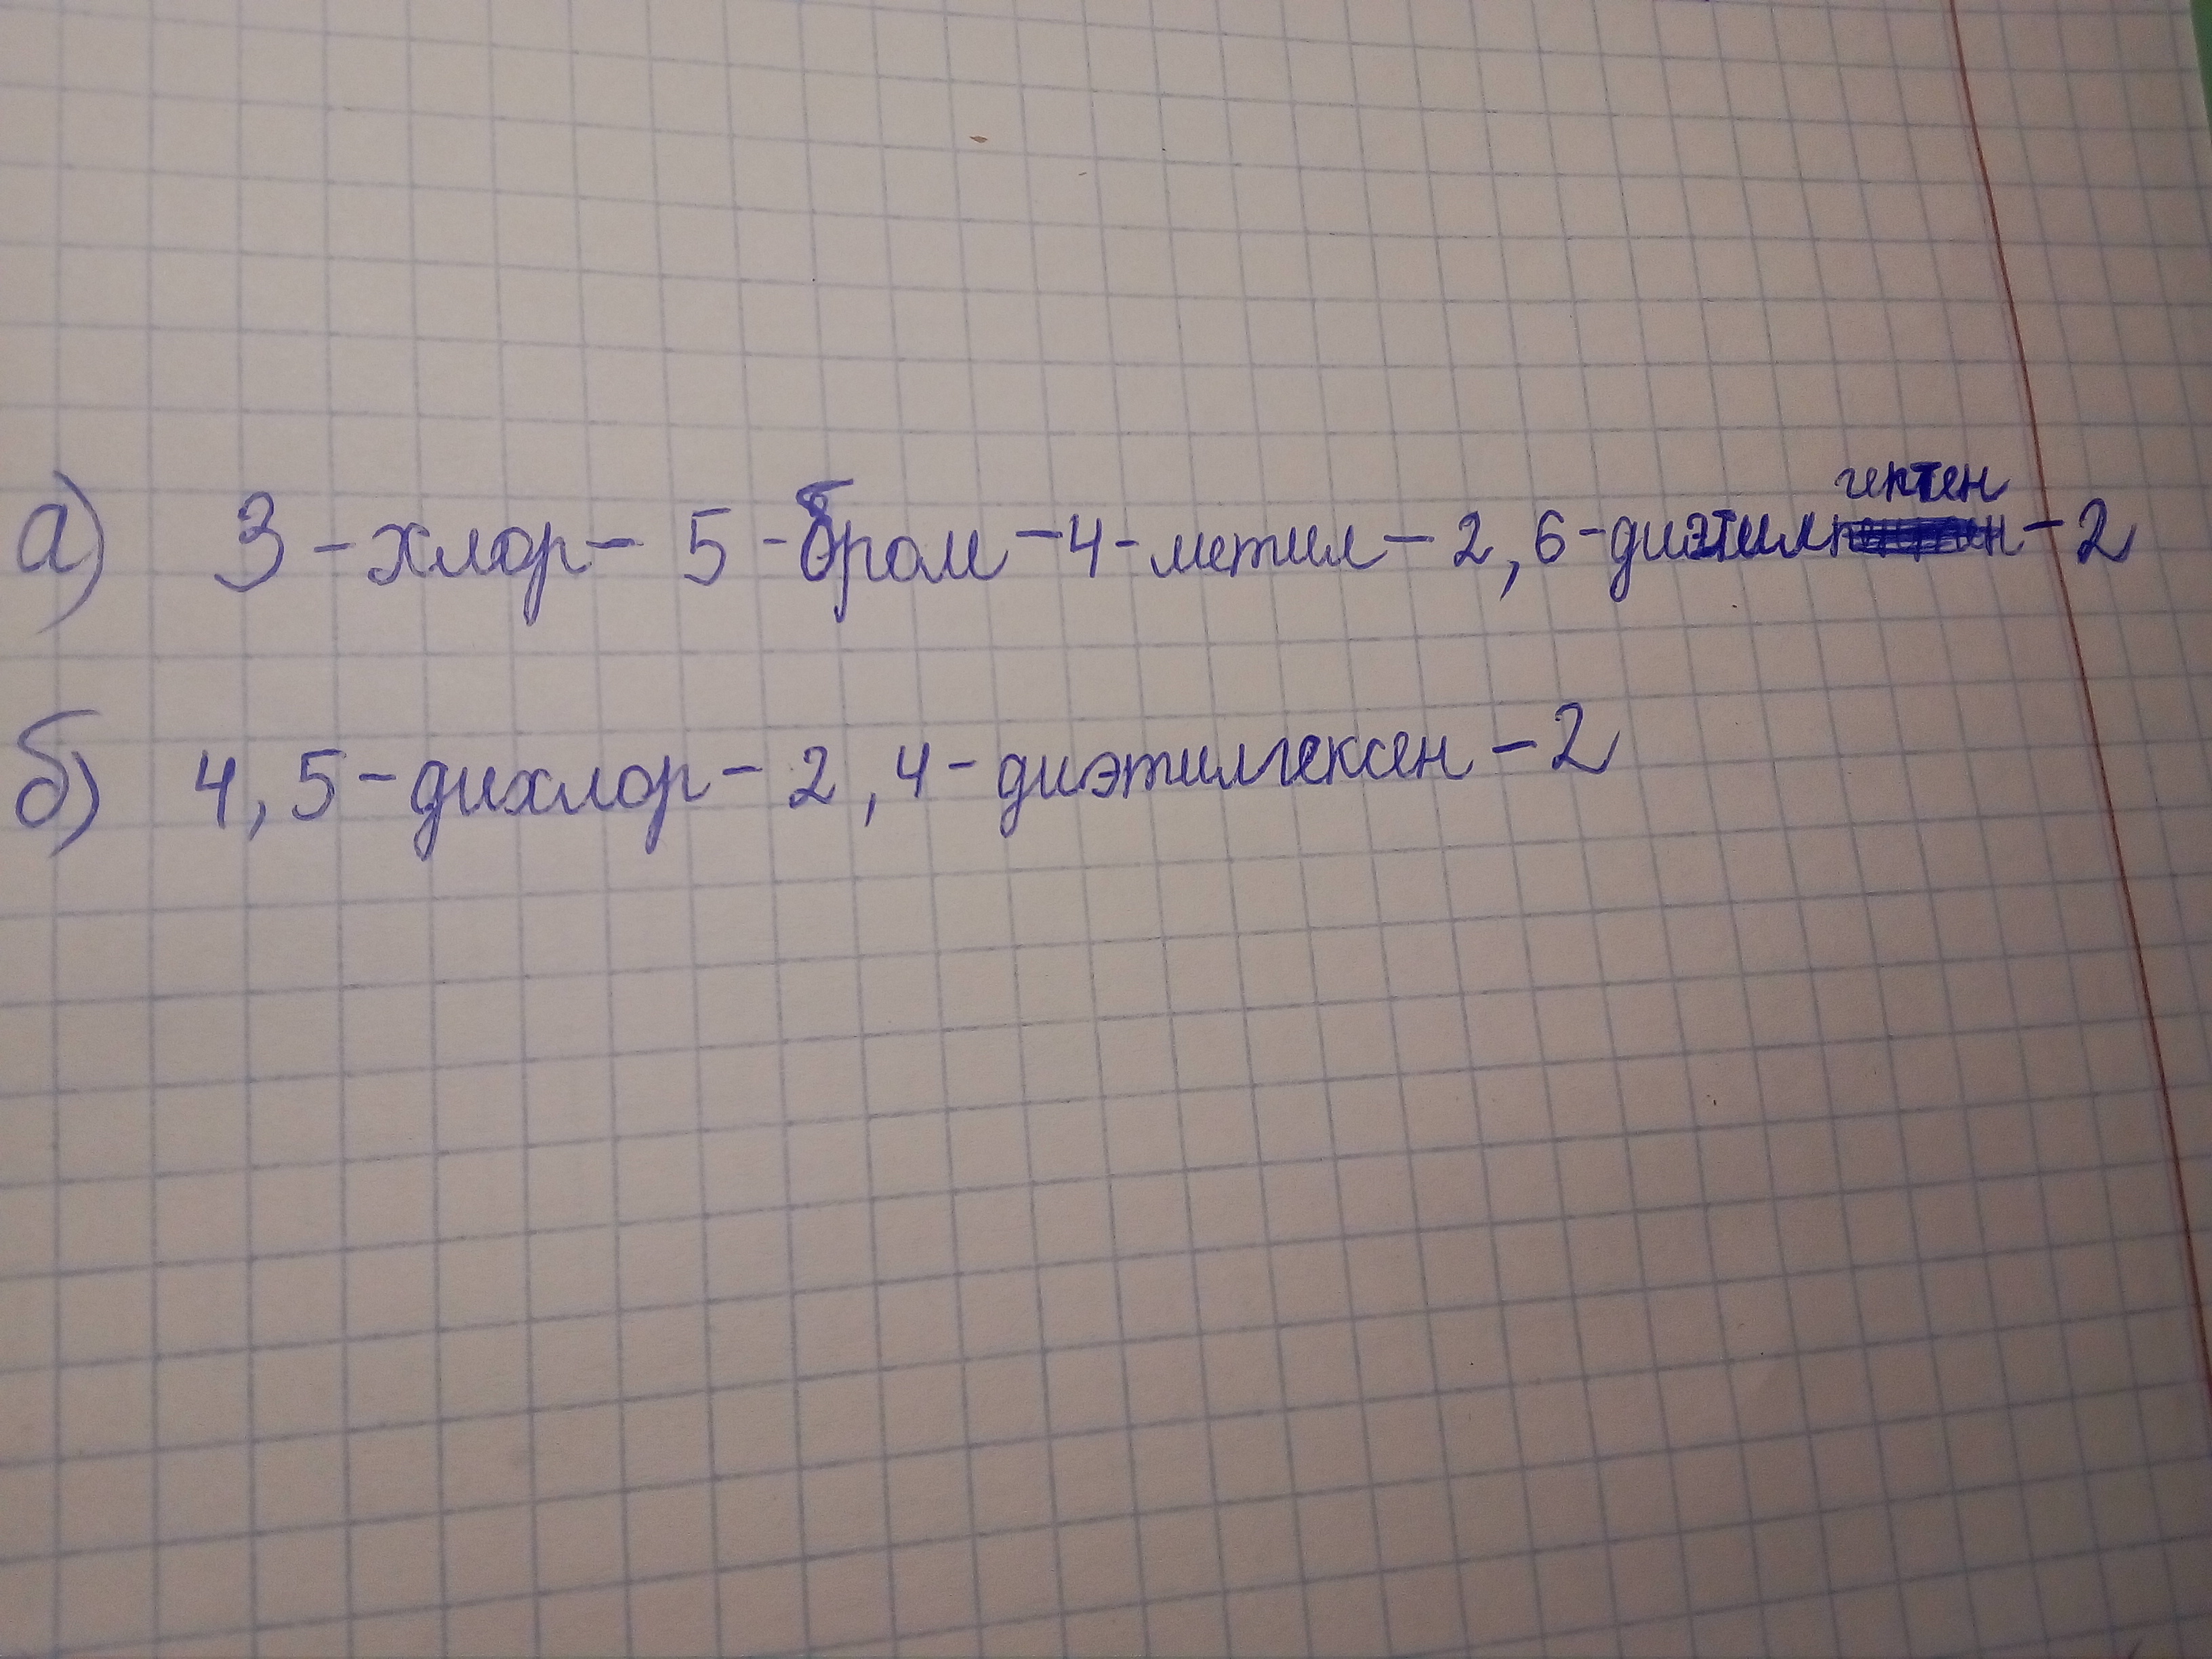 а) 3-хлор-5-бром-4-метил-2,6-диэтилгептен-2
б) 4,5-дихлор-2,4-диэтилгексен-2